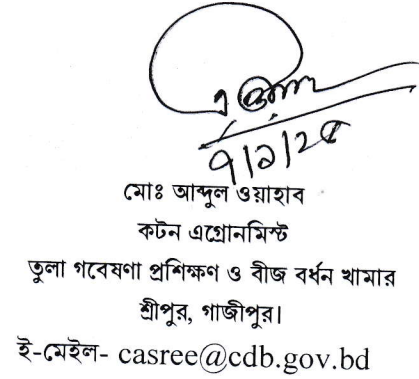 ৭/১/২৫
মোঃ আব্দুল ওয়াহাব
কটন এগ্রোনমিস্ট
তুলা গবেষণা প্রশিক্ষণ ও বীজ বর্ধন খামার
শ্রীপুর, গাজীপুর।
ই-মেইল- casree@cdb.gov.bd